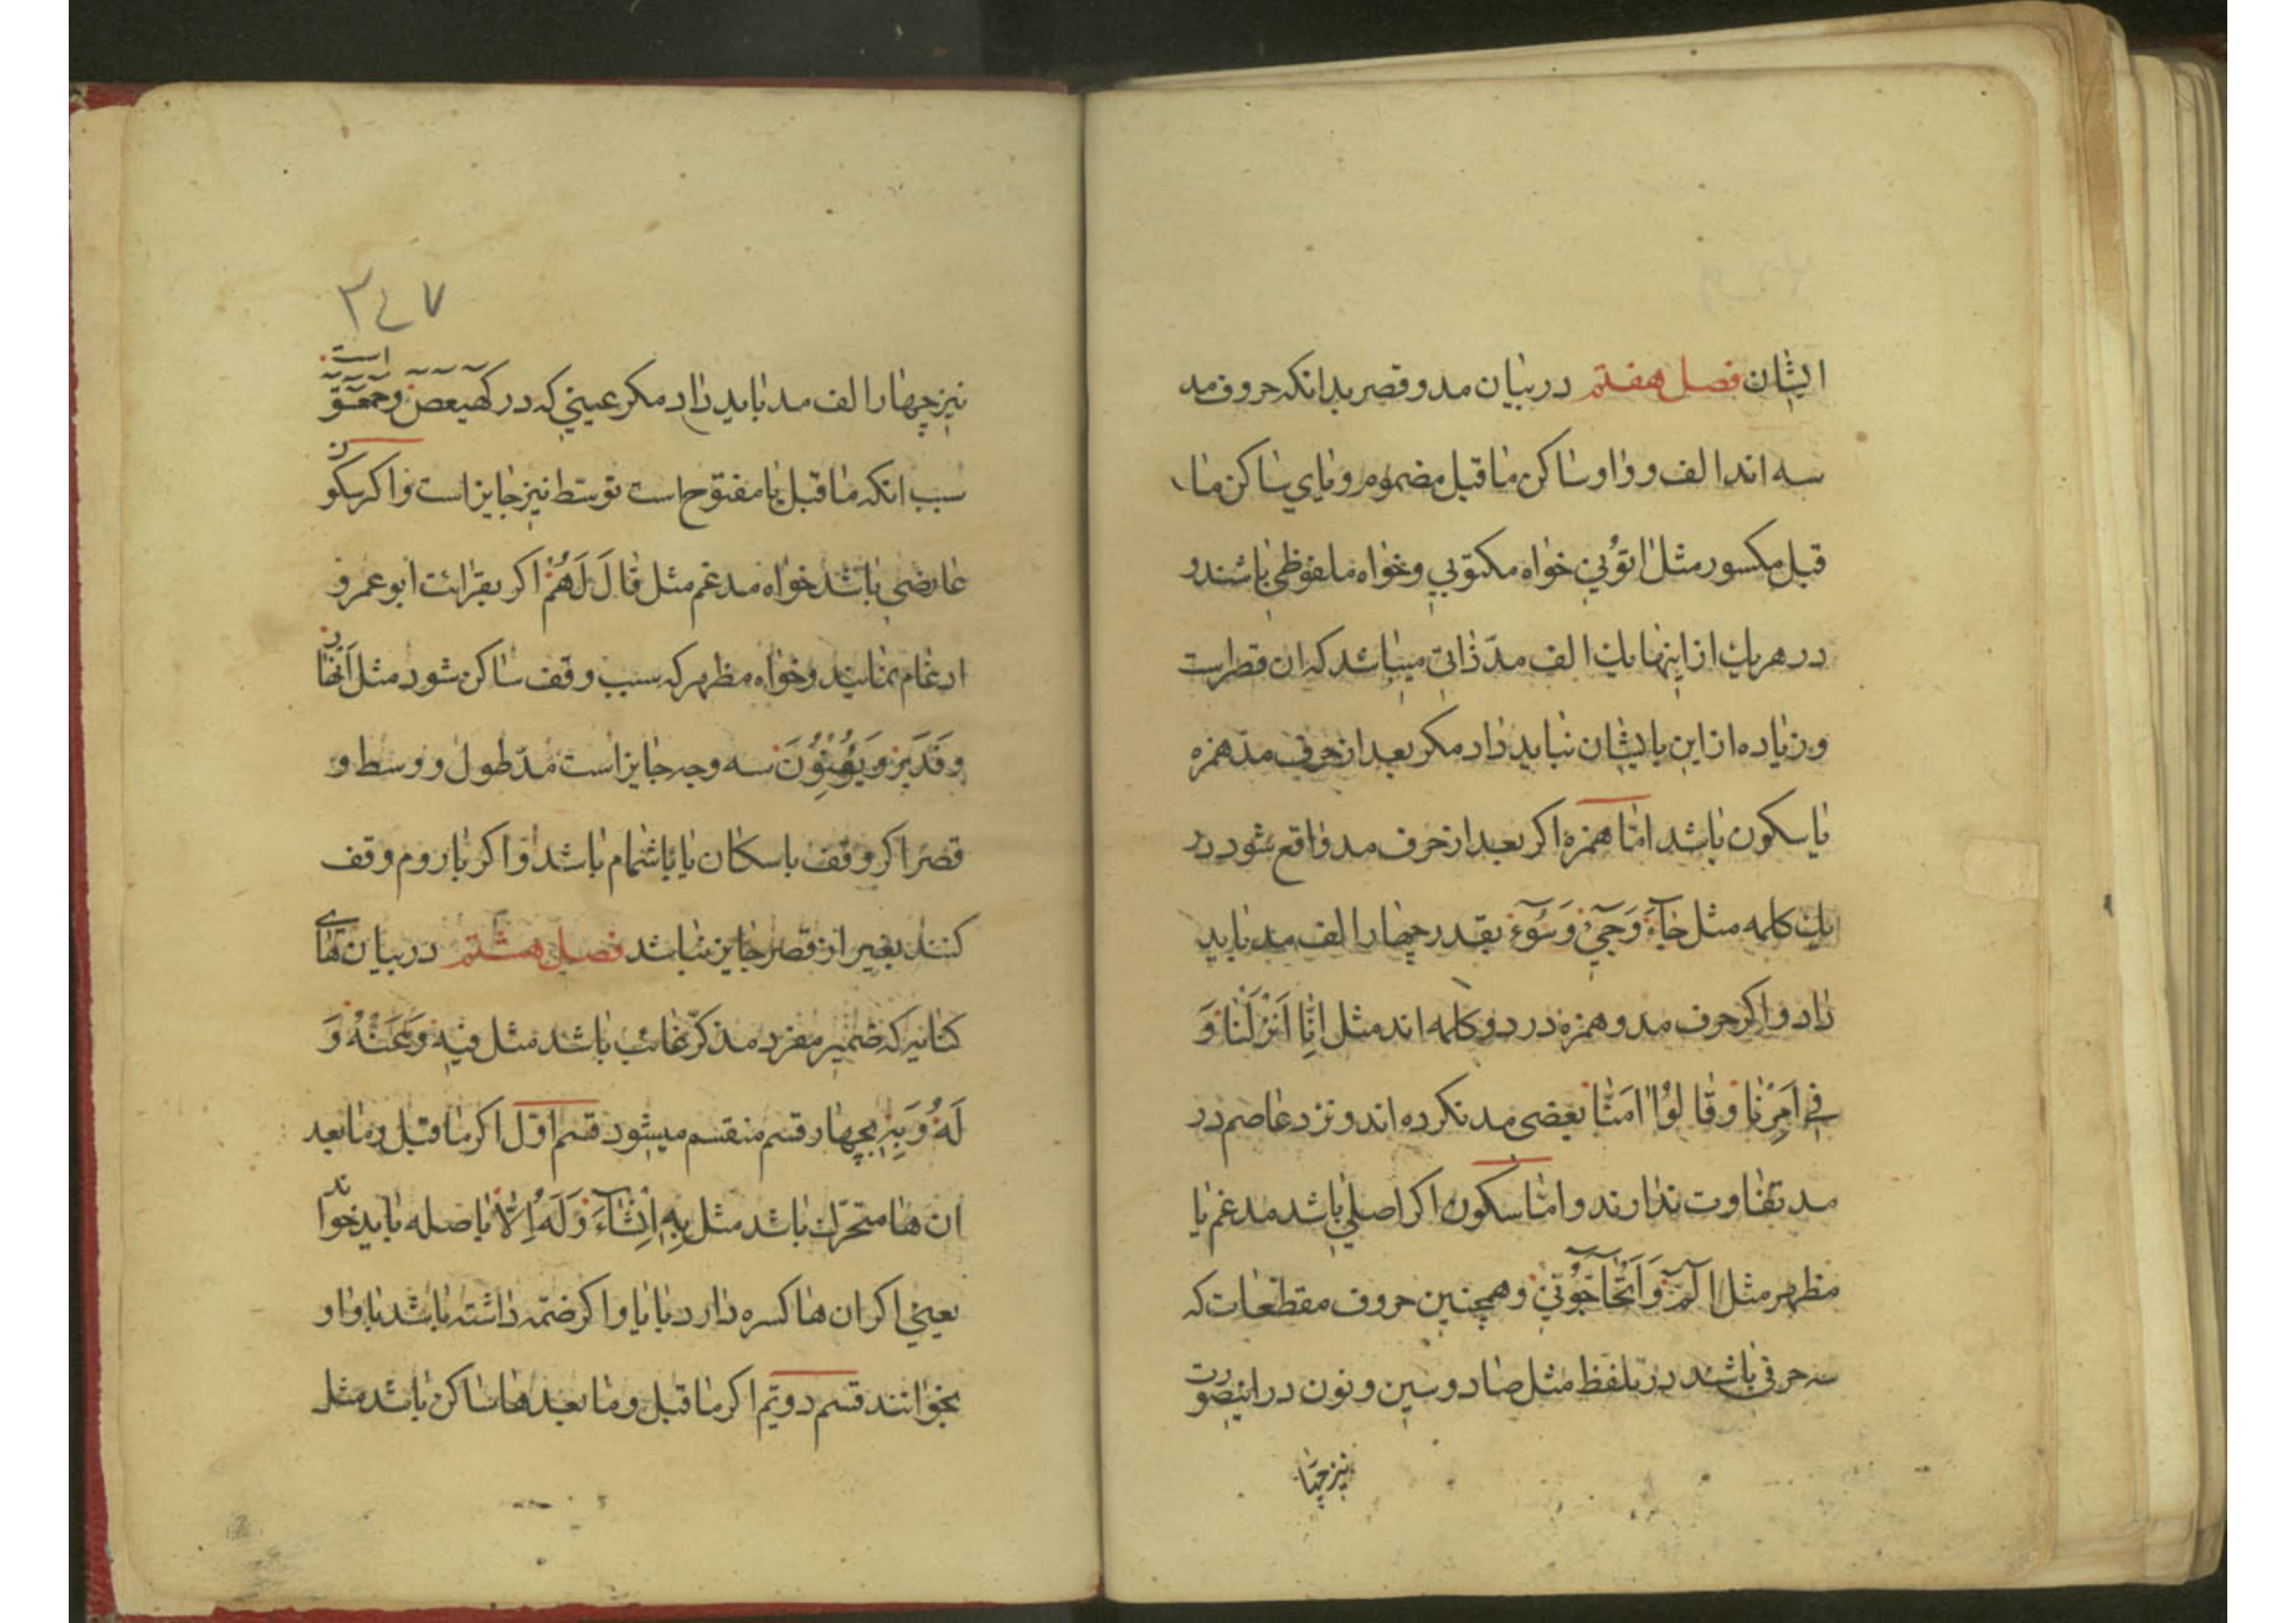 ایشان فصل هفتم در بیان مد و قصر بدانکه حروف مد
سه اند الف و واو ساکن ماقبل مضموم و یای ساکن ما
قبل مکسور مثل اتُونِي خواه مکتوبی و خواه ملفوظی باشند و
در هر یك از اینها یك الف مدّ ذاتی میباشد که ان قصر است
و زیاده از این بایشان نباید داد مکر بعد از حرف مد همزه
یا سکون باشد امّا همزه اکر بعد از حرف مد واقع شود در
یك کلمه مثل جَآءَ وَجِيٓءَ وَسُوٓءَ بقدر چهار الف مد باید
داد و اکر حرف مد و همزه در دو کلمه اند مثل اِنَّا اَنْزَلْنَا وَ
فِي اَمْرِنَا وَقَالُوْا امَنَّا بعضی مد نکرده اند و نزد عاصم در
مد تفاوت ندارند و امّا سکون اکر اصلی باشد مدغم یا
مظهر مثل الٓمّٓ وَ اَتُحَآجُّوٓنِّي و همچنین حروف مقطعات که
سه حرفی باشند در تلفظ مثل صاد و سین و نون در اینصورت
نیز چها
۳٤۷
نیز چهار الف مد باید داد مکر عینی که در کٓهٰیٰعٓصٓ و حٰمٓعٓسٓقٓ است
سبب انکه ماقبل یا مفتوح است توسّط نیز جایز است و اکر سکون
عارضی باشد خواه مدغم مثل قَالَ لَهُمْ اکر بقرائت ابو عمرو
ادغام نمایند و خواه مظهر که سبب وقف ساکن شود مثل اَنْهَار
وَقَدِیْر وَیُؤْمِنُوْنَ سه وجه جایز است مدّ طول و وسط و
قصر اکر وقف باسکان یا باشمام باشد و اکر با روم وقف
کنند بغیر از قصر جایز نباشد فصل هشتم در بیان های
کنایه که ضمیر مفرد مذکّر غائب باشد مثل فِیْهِ وَ عَنْهُ وَ
لَهُ وَ بِهِ بچهار قسم منقسم میشود قسم اوّل اکر ماقبل و مابعد
ان ها متحرّك باشد مثل بِهِ اِنْشَآءَ وَ لَهُ اِلَّا با صله باید خواند
یعنی اکر ان ها کسره دارد با یا و اکر ضمّه داشته باشد با واو
بخوانند قسم دویّم اکر ماقبل و مابعد ها ساکن باشد مثل